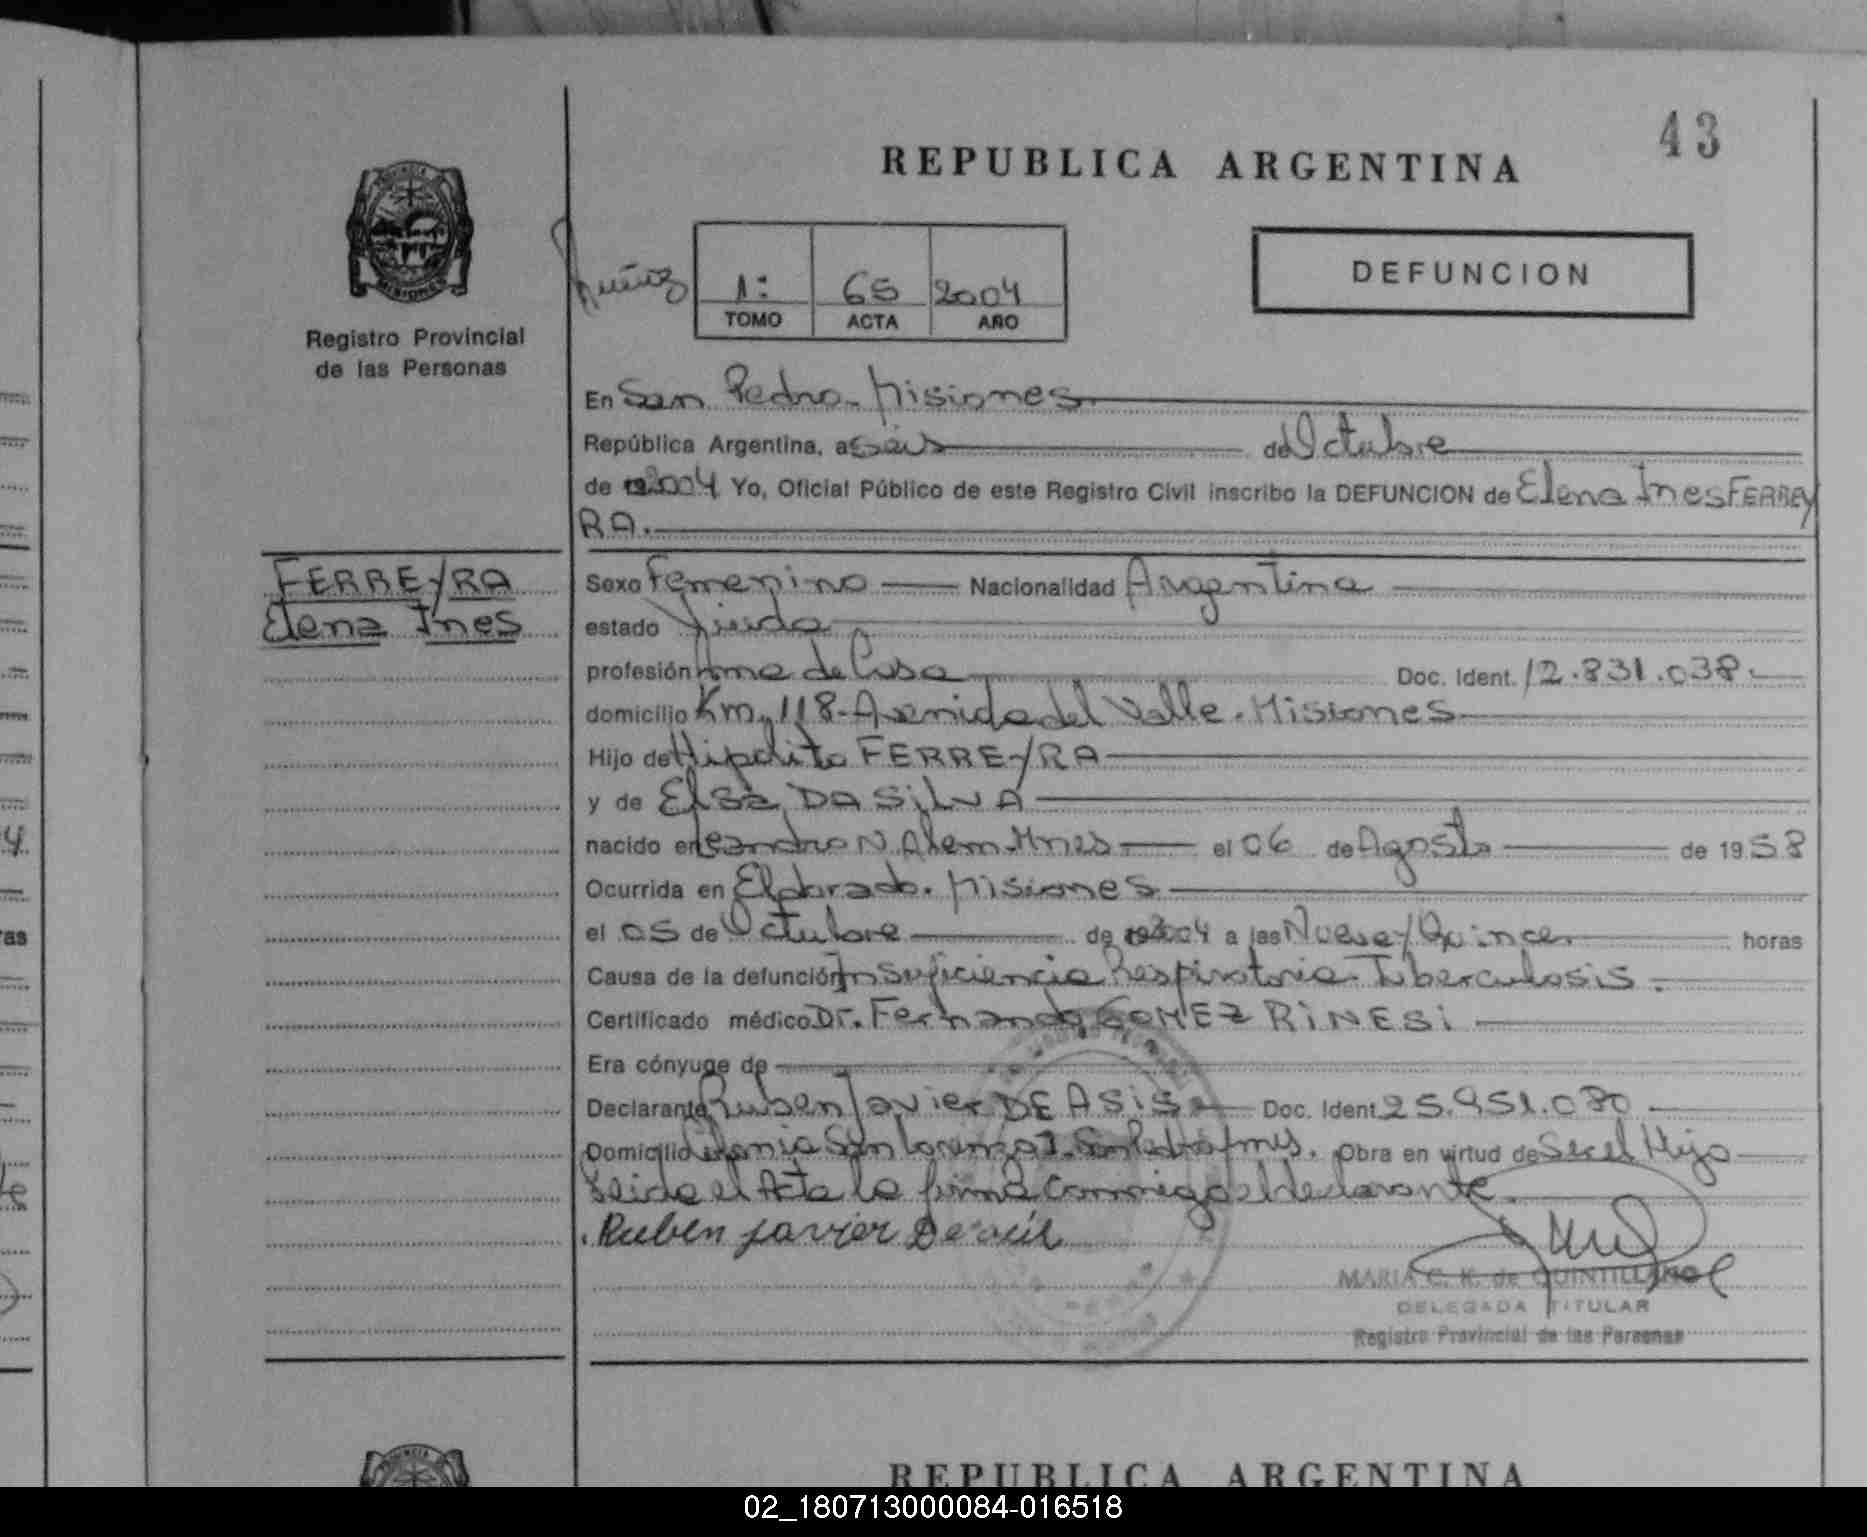 43
REPUBLICA ARGENTINA
DEFUNCION
Registro Provincial
de las Personas
1:
65
2004
TOMO
ACTA
AÑO
En San Pedro - Misiones
República Argentina, a Seis de Octubre
de 2004 Yo, Oficial Público de este Registro Civil inscribo la DEFUNCION de Elena Ines FERREY
RA.
FERREYRA
Elena Ines
Sexo Femenino Nacionalidad Argentina
estado Viuda
profesión Ama de Casa Doc. Ident. 12.831.038.
domicilio Km. 118 - Avenida del Valle. Misiones
Hijo de Hipolito FERREYRA
y de Elsa DA SILVA
nacido en Leandro N. Alem - Mnes el 06 de Agosto de 1958
Ocurrida en Eldorado. Misiones
el 05 de Octubre de 2004 a las Nueve y Quince. horas
Causa de la defunción Insuficiencia Respiratoria - Tuberculosis.
Certificado médico Dr. Fernando GOMEZ RINESI
Era cónyuge de
Declarante Ruben Javier DE ASIS Doc. Ident. 25.951.080
Domicilio Colonia San Lorenzo - San Pedro, mns. Obra en virtud de Ser el Hijo
Leida el Acta la firma conmigo el declarante.
Ruben Javier De
MARIA C. K. de QUINTILLANO
DELEGADA TITULAR
Registro Provincial de las Personas
REPUBLICA ARGENTINA
02_180713000084-016518